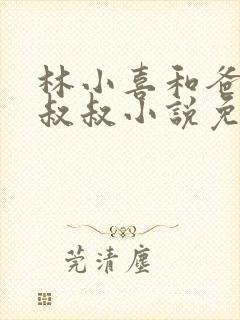 林小喜和爸
叔叔小說免
莞清塵